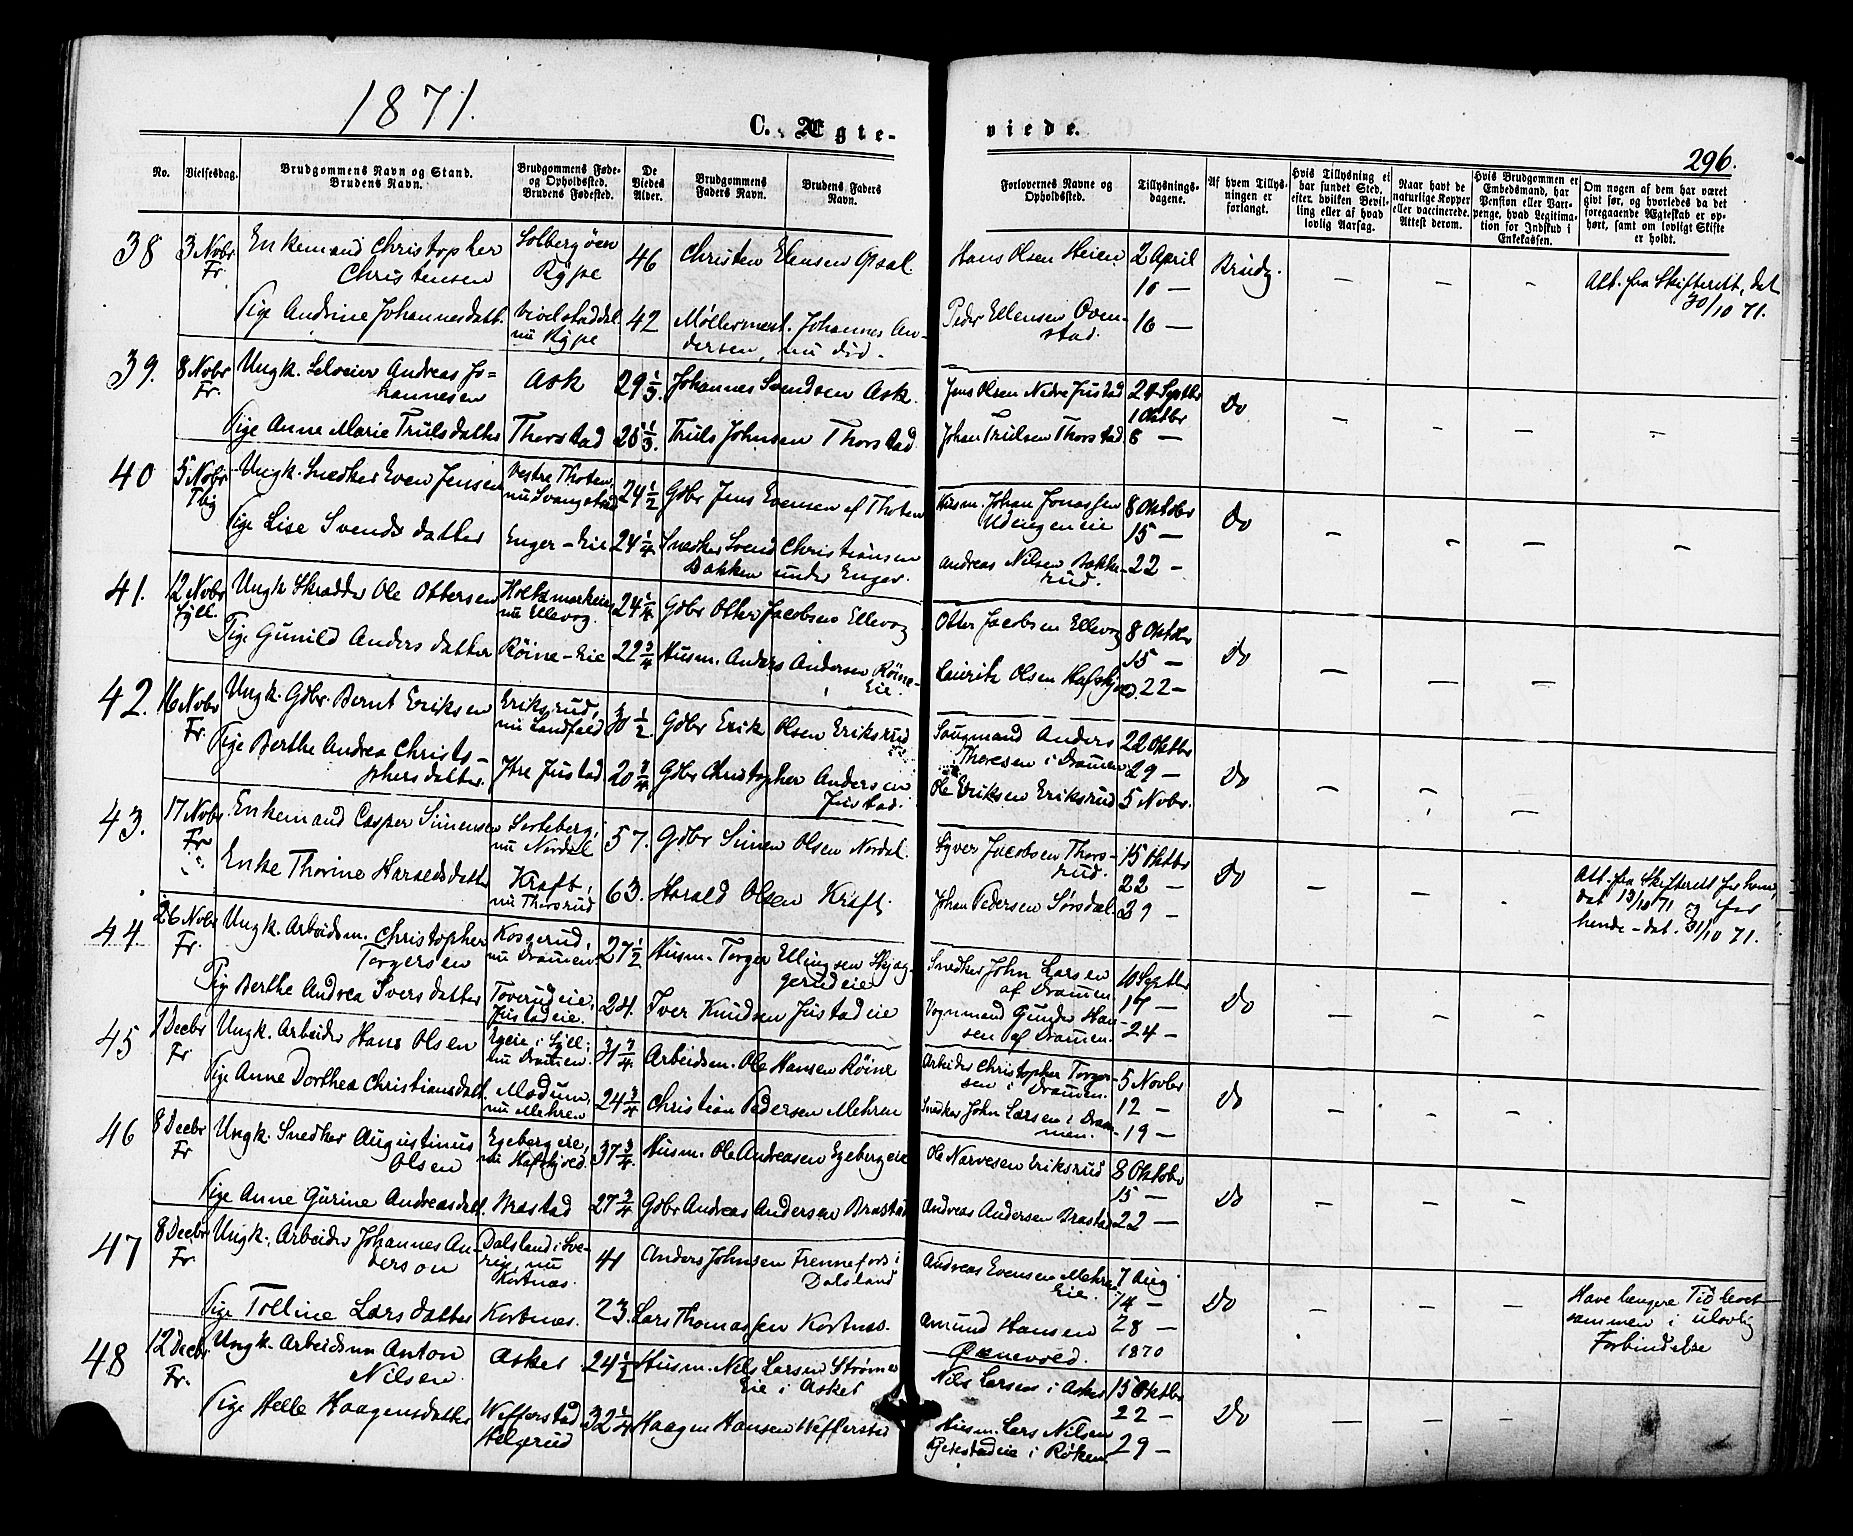 1871.
C. Ægte-
viede.
296.
No.
Vielsesdag.
Brudgommens Navn og Stand.
Brudens Navn.
Brudgommens Føde-
og Opholdssted.
Brudens Fødested.
De
Viedes
Alder.
Brudgommens
Faders Navn.
Brudens Faders
Navn.
Forlovernes Navne og
Opholdssted.
Tillysnings-
dagene.
Af hvem Tillys-
ningen er
forlangt.
Hvis Tillysning ei
har fundet Sted,
efter hvilken Bevil-
ling eller af hvad
lovlig Aarsag.
Naar havt de
naturlige Kopper
eller vaccinerede.
Attest derom.
Hvis Brudgommen er
Embedsmand, har
Pension eller Vart-
penge, hvad Legitima-
tion for Indskud i
Enkekassen.
Om nogen af dem har været
givt før, og hvorledes da det
foregaaende Ægteskab er op-
hørt, samt om lovligt Skifte
er holdt.
38 3 Novbr Enkemand Christopher Solbergøen 46 Christen Hans Olsen Heien 2 April Brudg. — — — Att. fra Skifterett, dat
Fr. Christensen Rype 16 — 30/10 71.
Pige Andrine Johannesdatt. nu Rype 42 Møllermest. Johannes An- Peder Ellensen Oven- 16 —
dersen, nu død. stad.
39. 8 Novbr Ungk. Andreas Jo- Ask 29 1/3. Johannes Svendsen Ask. Jens Olsen Nedre Justad 24 Septbr Do — — —
Fr. hannesen 1 Octbr
Pige Anne Marie Trulsdatter Thorstad 25 1/3. Truls Johnsen Thorstad Johan Trulsen Thorstad 8 —
40 5 Novbr Ungk. Snedker Even Jensen Vestre Thoten, 24 1/2 Gdbr Jens Evensen af Thoten Husm. Johan Jonassen 8 Oktobr Do — — — —
Tbg nu Svangstad 15 —
Pige Lise Svendsdatter Enger-Eie 24 1/4 Snedker Svend Christiansen Andreas Nilsen Bakke- 22 —
Bakken under Enger. rud.
41. 12 Novbr Ungk Skrædder Ole Ottersen Holtsmarkeie 24 1/4 Gdbr Otter Jacobsen Ellevog Otter Jacobsen Ellevog 8 Oktbr Do — — —
Syll. nu Ellevog. 15 —
Pige Gunild Andersdatter Røine-Eie 22 3/4 Husm. Anders Andersen Røine- Laurits Olsen Hafskjold. 22 —
Eie.
42. 16 Novbr Ungk. Gdbr. Bernt Eriksen Eriksrud, 30 1/2. Gdbr Erik Olsen Eriksrud Saugmand Anders 22 Oktbr Do — — —
Fr. nu Landfald Thoresen i Dramen 29 —
Pige Berthe Andrea Christo-
phersdatter. Ytre Justad. 20 3/4 Gdbr Christopher Andersen Ole Eriksen Eriksrud 5 Novbr.
Justad.
43. 17 Novbr Enkemand Casper Simensen Sorteberg, 57. Gdbr Simen Olsen Nordal. Syver Jacobsen Thors- 15 Oktbr Do — — - Att. fra Skifterett for ham,
Fr nu Nordal rud. 22 — dat 13/10 71 og for
Enke Thorine Haraldsdatter Kraft, 63. Harald Olsen Kraft. Johan Pedersen Sørsdal 29 — hende - dat. 31/10 71.
nu Thorsrud
44. 26 Novbr Ungk. Arbeidsm. Christopher Kosgerud, 27 1/2 Husm. Torger Ellingsen Skjæg- Snedker John Larsen 10 Septbr Do — — —
Fr. Torgersen nu Dramen. gerudeie af Dramen. 17 —
Pig Berthe Andrea Iversdatter Toverudeie, 24. Iver Knudsen Justadeie Vognmand Gunder Han- 24 —
Justadeie. sen af Dramen.
45 1 Decbr Ungk. Arbeider Hans Olsen Egeie i Syll; 31 3/4 Arbeidsm. Ole Hansen Røine Arbeider Christopher Torger- 5 Novbr Do — — —
Fr nu Dramen. sen i Dramen. 12 —
Pige Anne Dorthea Christiansdatt. Modum, 24 3/4 Christian Pedersen Mehren Snedker John Larsen i Dra- 19 —
nu Mehren men.
46 8 Decbr Ungk. Snedker Augustinus Egebergeie, 37 3/4. Husm. Ole Andreasen Egebergeie Ole Narvesen Eriksrud 8 Oktobr Do — — —
Fr Olsen nu Hafskjold. 15 —
Pige Anne Gurine Andreasdatt. Brastad 27 3/4 Gdbr Andreas Andersen Brastad Andreas Andersen Brastad 22 —
47 8 Decbr Ungk. Arbeider Johannes An- Dalsland i Sve- 41 Anders Johnsen Frennefors i Andreas Evensen Mehren 7 Aug Do — — — Have længere Tid levet
Fr. derson rig, nu Kortnæs. Dalsland Eie. 14 — sammen i ulovlig
Pige Tolline Larsdatter Kortnæs. 23. Lars Thomassen Kortnæs. Amund Hansen 28 — Forbindelse
1870
48 12 Decbr Ungk. Arbeidsm Anton Asker 24 1/2 Husm. Nils Larsen Strømme Nils Larsen i Asker 15 Oktbr Do — — —
Fr. Nilsen. Eie i Asker 22 —
Pige Helle Haagensdatter Wefferstad 32 1/4 Haagen Hansen Wefferstad Husm. Lars Nilsen 29 —
Helgerud i Røken.